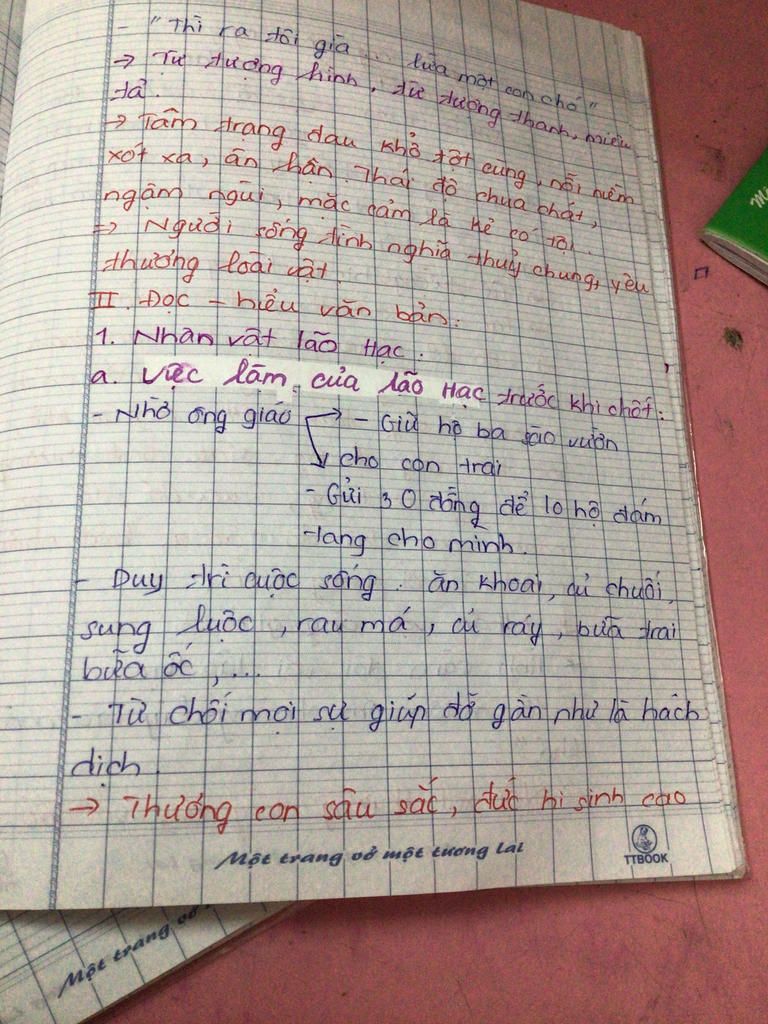 - "Thì ra tôi già ... lừa một con chó"
→ Từ tượng hình, từ tượng thanh, miêu
tả.
→ Tâm trạng đau khổ tột cùng, nỗi niềm
xót xa, ân hận. Thái độ chua chát,
ngậm ngùi, mặc cảm là kẻ có tội.
⇒ Người sống tình nghĩa thuỷ chung, yêu
thương loài vật.
II. Đọc - hiểu văn bản:
1. Nhân vật lão Hạc.
a. Việc làm của lão Hạc trước khi chết:
- Nhờ ông giáo → - Giữ hộ ba sào vườn
cho con trai
- Gửi 30 đồng để lo hộ đám
tang cho mình.
- Duy trì cuộc sống: ăn khoai, củ chuối,
sung luộc, rau má, củ ráy, bữa trai
bữa ốc, ...
- Từ chối mọi sự giúp đỡ gần như là hách
dịch
→ Thương con sâu sắc, đức hi sinh cao
Một trang vở một tương lai
TTBOOK
Một trang vở